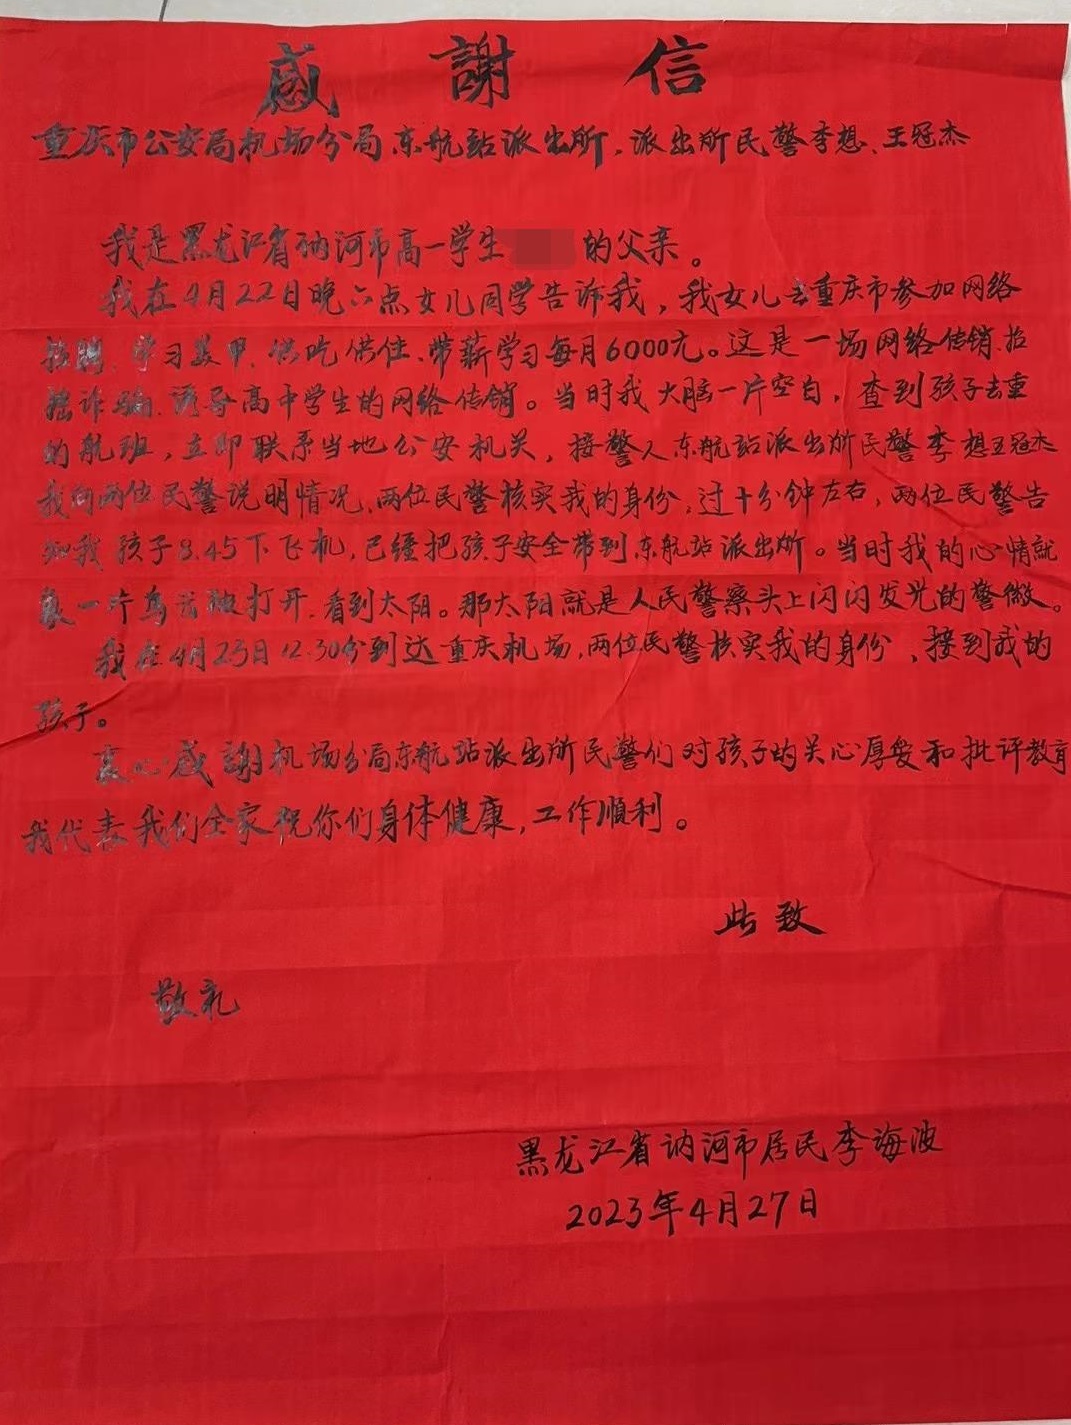 感謝信
重庆市公安局机场分局东航站派出所、派出所民警李想、王冠杰
我是黑龙江省讷河市高一学生 的父亲。
我在4月22日晚六点女儿同学告诉我，我女儿去重庆市参加网络
招聘、学习美甲、供吃供住、带薪学习每月6000元。这是一场网络传销、招
摇诈骗、诱导高中学生的网络传销。当时我大脑一片空白，查到孩子去重
的航班，立即联系当地公安机关，接警人东航站派出所民警李想王冠杰
我向两位民警说明情况、两位民警核实我的身份，过十分钟左右，两位民警告
知我，孩子8.45下飞机，已经把孩子安全带到东航站派出所。当时我的心情就
像一片乌云被打开、看到太阳。那太阳就是人民警察头上闪闪发光的警徽。
我在4月23日12.30分到达重庆机场，两位民警核实我的身份，接到我的
孩子。
衷心感謝机场分局东航站派出所民警们对孩子的关心厚爱和批评教育
我代表我们全家祝你们身体健康，工作顺利。
此致
敬礼
黑龙江省讷河市居民李海波
2023年4月27日